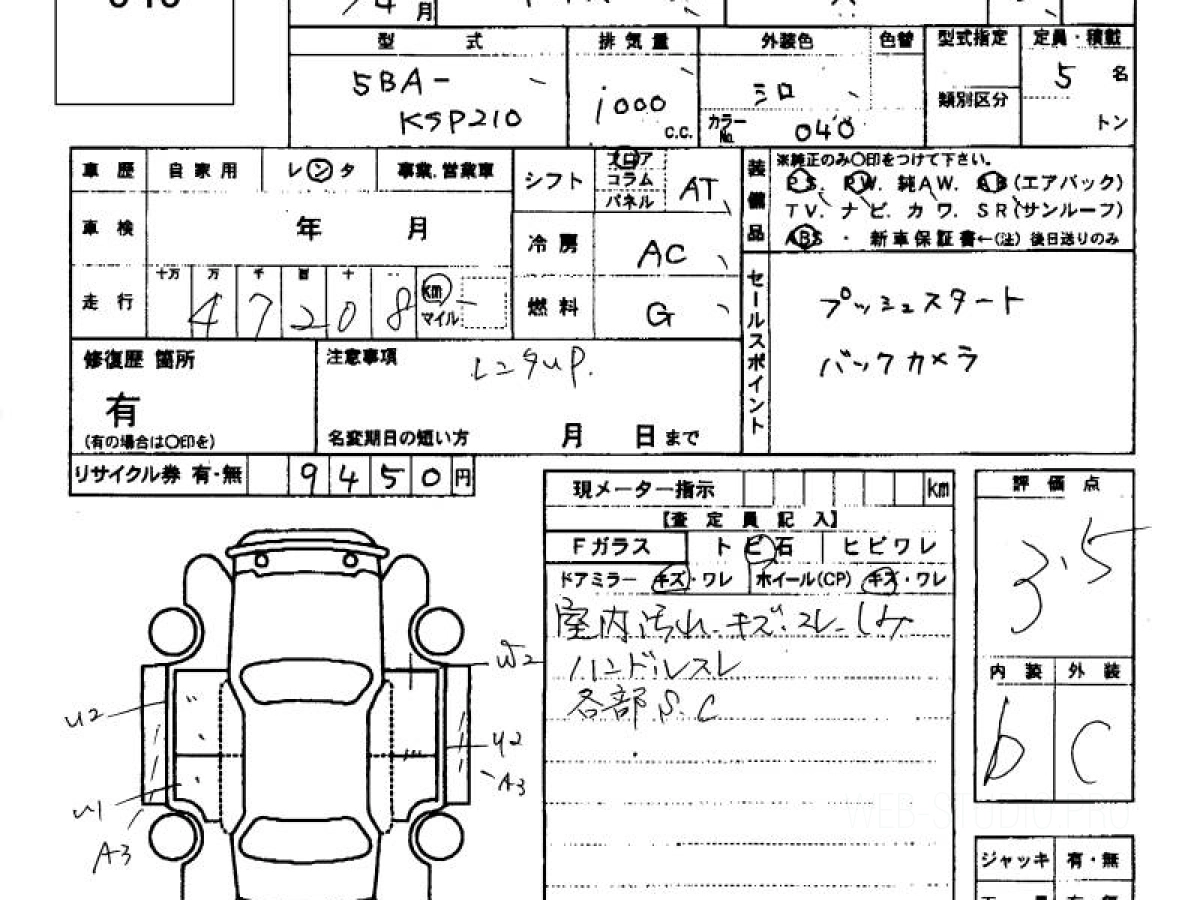 月
型 式 排気量 外装色 色替 型式指定 定員・積載
5BA-
KSP210
1000 C.C.
シロ
カラーNo. 040
類別区分
5 名
トン
車歴 自家用 レンタ 事業.営業車
車検 年 月
走行 十万 万 千 百 十 一
47208 km マイル
シフト フロア コラム パネル AT
冷房 AC
燃料 G
装備品 ※純正のみ〇印をつけて下さい。
PS. PW. 純AW. AB(エアバック)
TV. ナビ. カワ. SR(サンルーフ)
ABS ・ 新車保証書←(注) 後日送りのみ
セールスポイント
プッシュスタート
バックカメラ
修復歴 箇所
有
(有の場合は〇印を)
注意事項 レンタup.
名変期日の短い方 月 日まで
リサイクル券 有・無 9450円
現メーター指示 km
【査定員記入】
Fガラス トビ石 ヒビワレ
ドアミラー キズ・ワレ ホイール(CP) キズ・ワレ
室内汚れ.キズ.スレ.シミ
ハンドルスレ
各部S.C
評価点
3.5
内装 外装
b C
ジャッキ 有・無
W2
U2
U2
A3
U1
A3
WEB-STUDIO.PRO